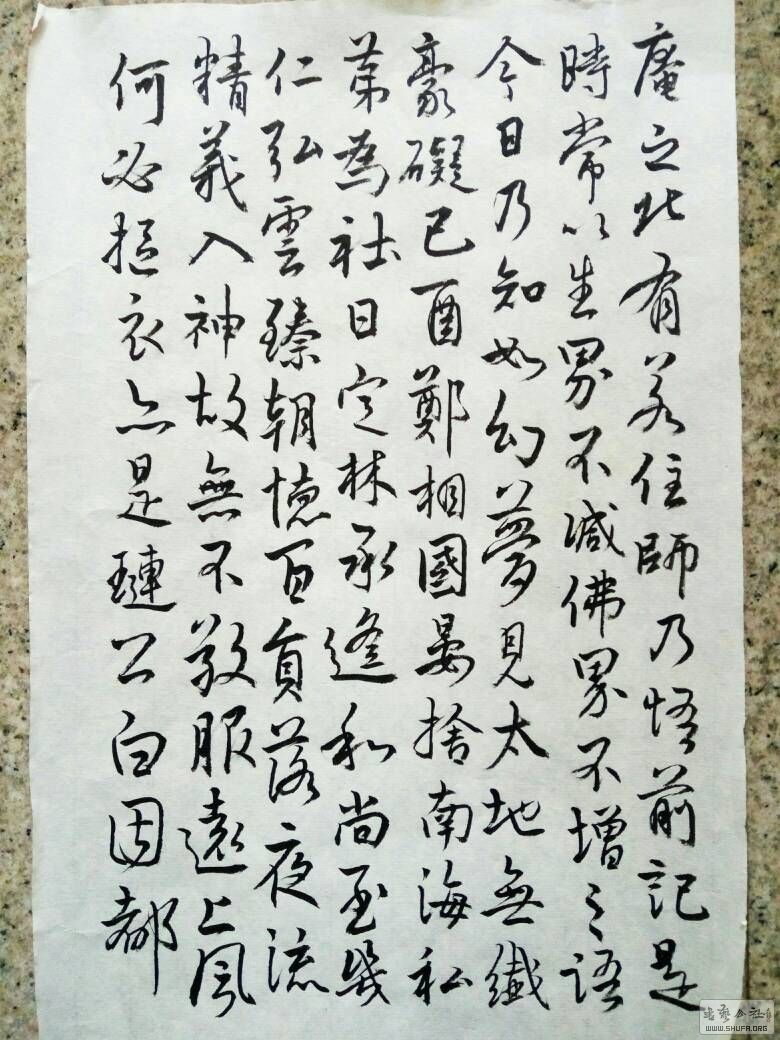 庵之北有若住師乃悟前記是
時常以生界不減佛界不增之語
今日乃知如幻夢見太地無纖
豪礙已酉鄭相國晏捨南海私
苐為社日定林承逢和尚至幾
仁弘雲臻朝憶百負落夜流
精義入神故無不敬服遠上風
何必摳衣亦是璉公白因都
WWW.SHUFA.ORG